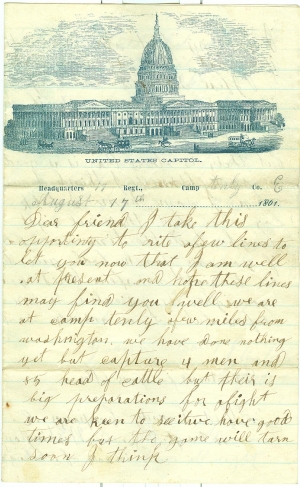 UNITED STATES CAPITOL.
Headquarters 11 Regt., Camp tenly Co. E
August 17th 1861.
Dear friend I take this
opportunity to rite a few lines to
let you now that I am well
at present and hope these lines
may find you well we are
at camp tenly a few miles from
washington. we have done nothing
yet but capture 4 men and
85 head of cattle but their is
big preparations for a fight
we are to we have good
times but the game will turn
soon I think